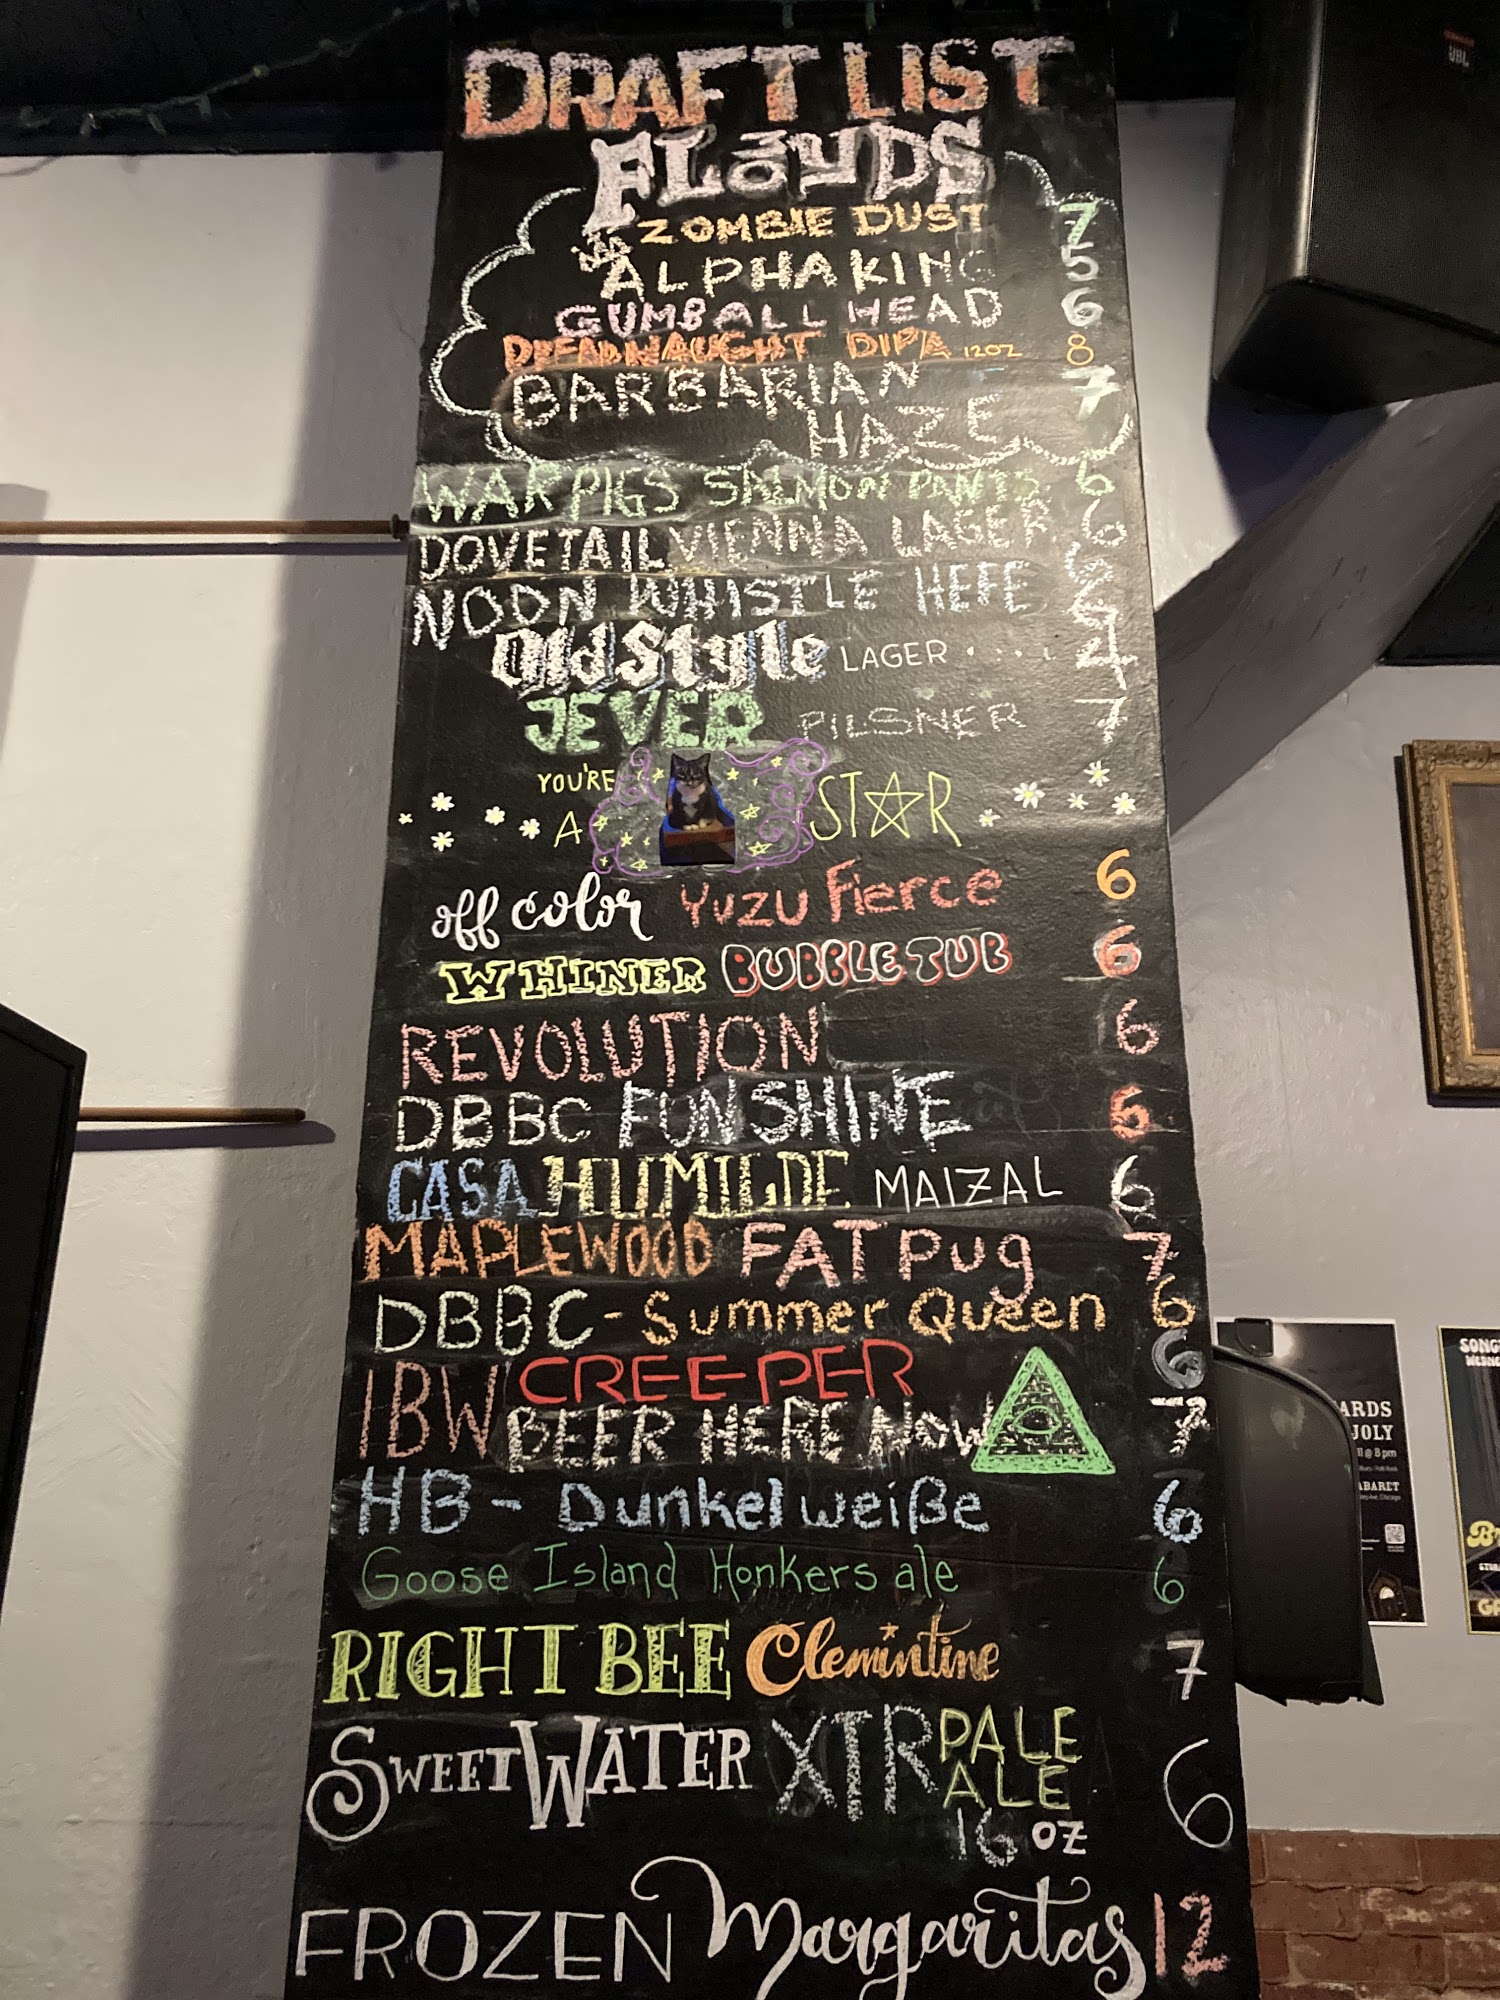 DRAFT LIST
FLOYDS
ZOMBIE DUST 7
ALPHA KING 5
GUMBALL HEAD 6
DREADNAUGHT DIPA 12OZ 8
BARBARIAN 7
HAZE
WAR PIGS SALMON PANTS 6
DOVETAIL VIENNA LAGER 6
NOON WHISTLE HEFE 6
Old Style LAGER .... 4
JEVER PILSNER 7
YOU'RE
A ST☆R
off color Yuzu Fierce 6
WHINER BUBBLE TUB 6
REVOLUTION 6
DBBC FUNSHINE 6
CASA HUMILDE MAIZAL 6
MAPLEWOOD FAT PUG 7
DBBC - Summer Queen 6
IBW CREEPER 6
BEER HERE NOW 7
HB - Dunkelweiße 6
Goose Island Honkers ale 6
RIGHT BEE Clemintine 7
SWEETWATER XTR PALE ALE 6
16 oz
FROZEN Margaritas 12
JBL
ARDS
JOLY
@ 8 pm
ABARET
SONG